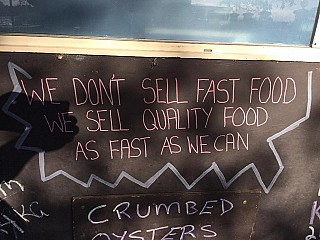 WE DON'T SELL FAST FOOD
WE SELL QUALITY FOOD
AS FAST AS WE CAN
CRUMBED
OYSTERS
KG